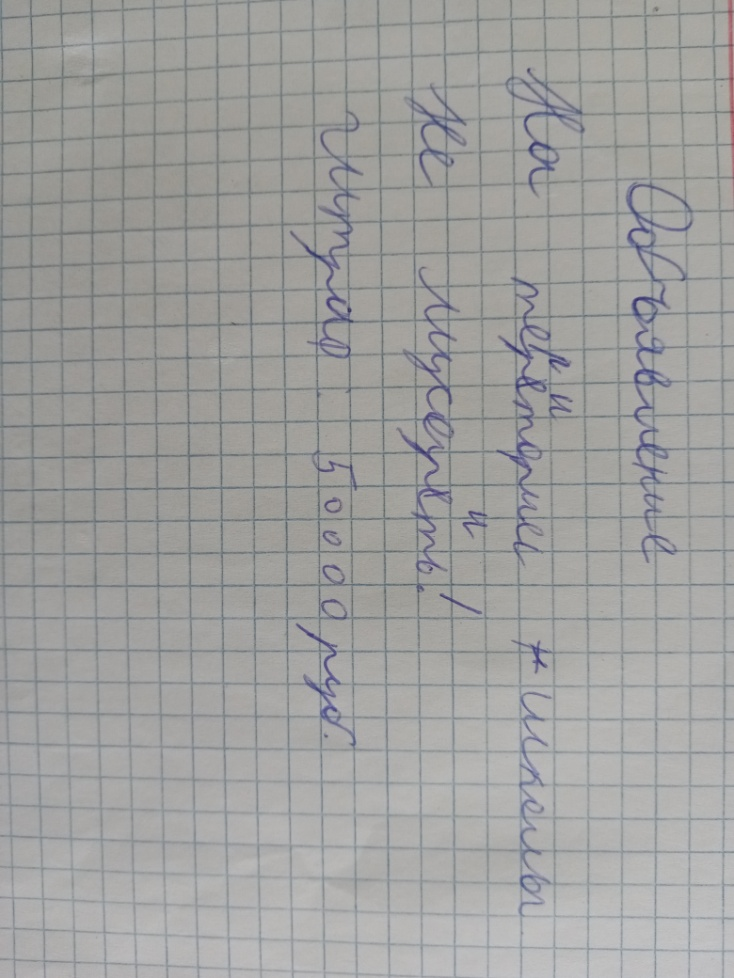 Объявление
На территории школы
Не мусорить!
Штраф. 50000 руб.